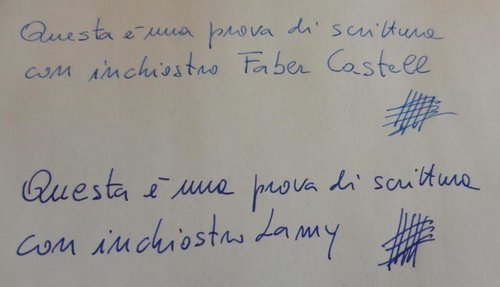 Questa è una prova di scrittura
con inchiostro Faber Castell
Questa è una prova di scrittura
con inchiostro Lamy